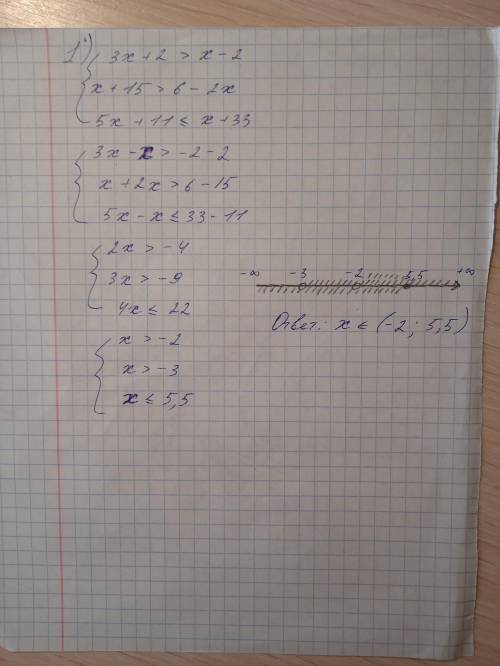 1) 3x+2 > x-2
x+15 > 6-2x
5x+11 ≤ x+33
3x-x > -2-2
x+2x > 6-15
5x-x ≤ 33-11
2x > -4
3x > -9
4x ≤ 22
x > -2
x > -3
x ≤ 5,5
-∞ -3 -2 5,5 +∞
Ответ: x ∈ (-2; 5,5)